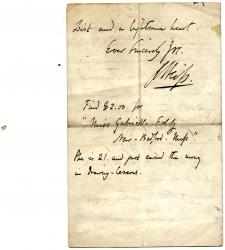 and a lightsome heart.
Ever sincerely yrs.
Find $2.00 for
"Miss Gabriella Eddy
New-Bedford. Mass"
She is 21. and just earned the money
in Drawing-lessons.